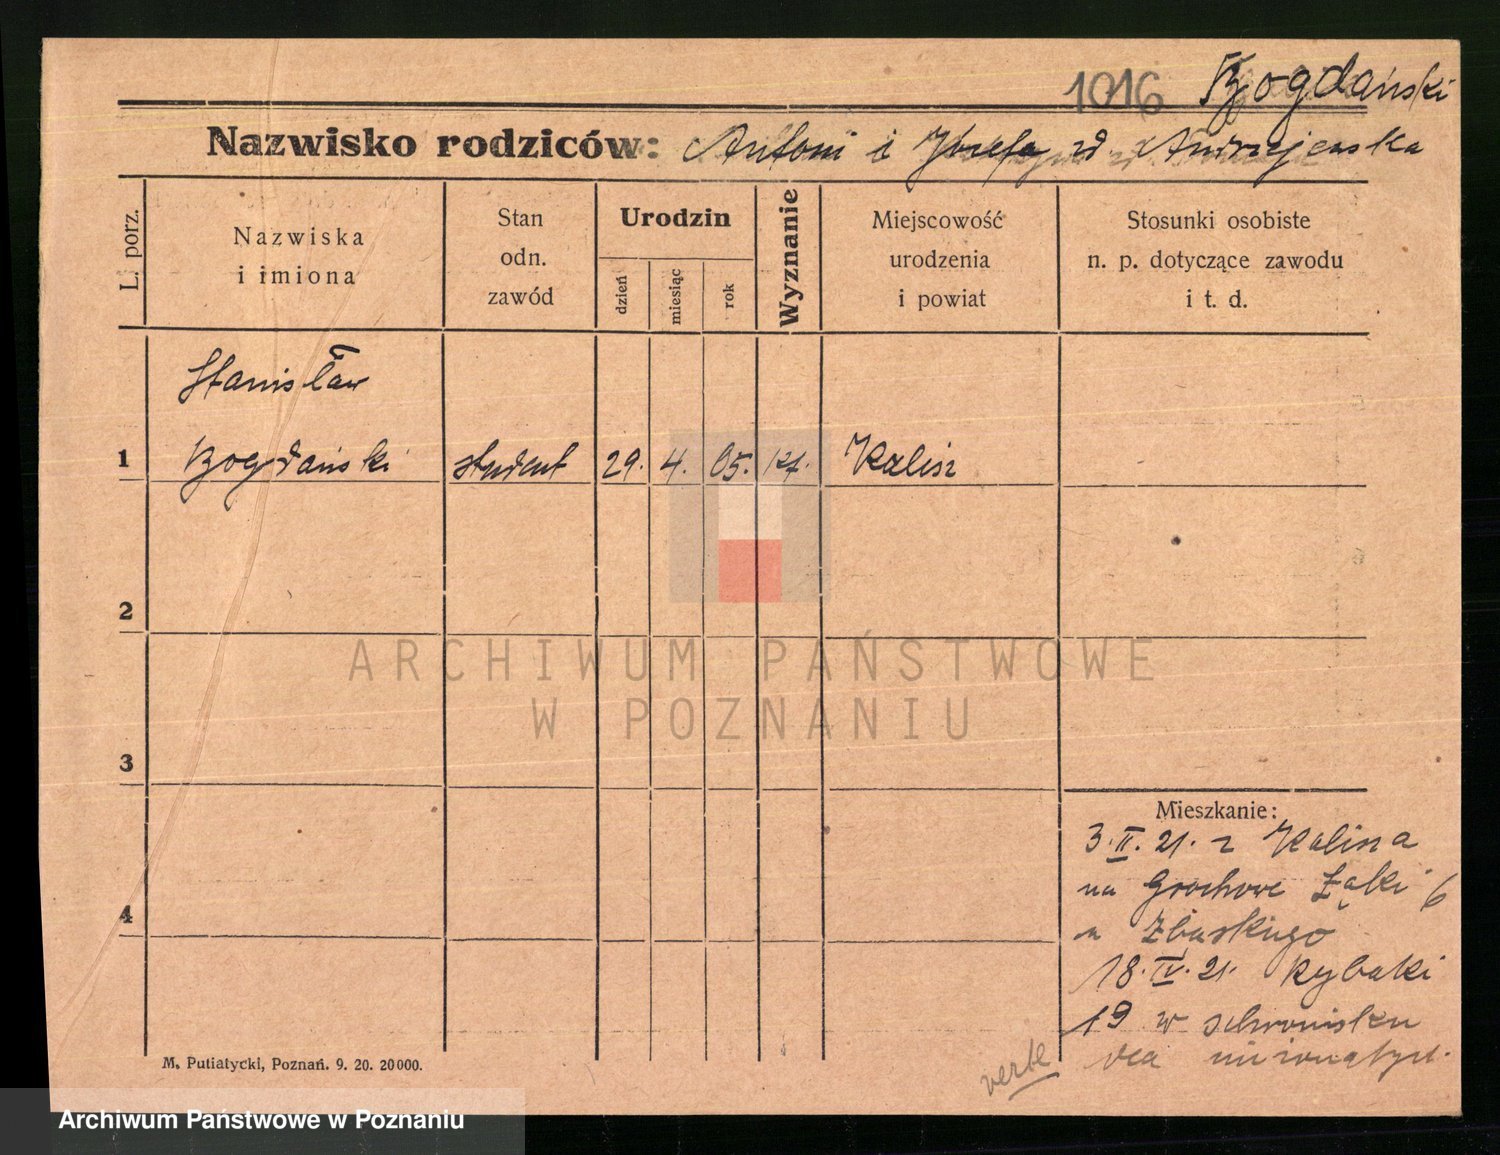 1016 Bogdański
Nazwisko rodziców: Antoni i Józefa zd. Andrzejewska
L. porz.
Nazwiska
i imiona
Stan
odn.
zawód
Urodzin
dzień
miesiąc
rok
Wyznanie
Miejscowość
urodzenia
i powiat
Stosunki osobiste
n. p. dotyczące zawodu
i t. d.
Stanisław
1 Bogdański student 29. 4. 05. kt. Kalisz
2
3
4
ARCHIWUM PAŃSTWOWE
W POZNANIU
Mieszkanie:
3.II.21. z Kalisza
na Grochowe Łąki 6
u Zbąskiego
18.IV.21. Rybaki
19 w schronisku
dla
verte
M. Putiatycki, Poznań. 9. 20. 20000.
Archiwum Państwowe w Poznaniu